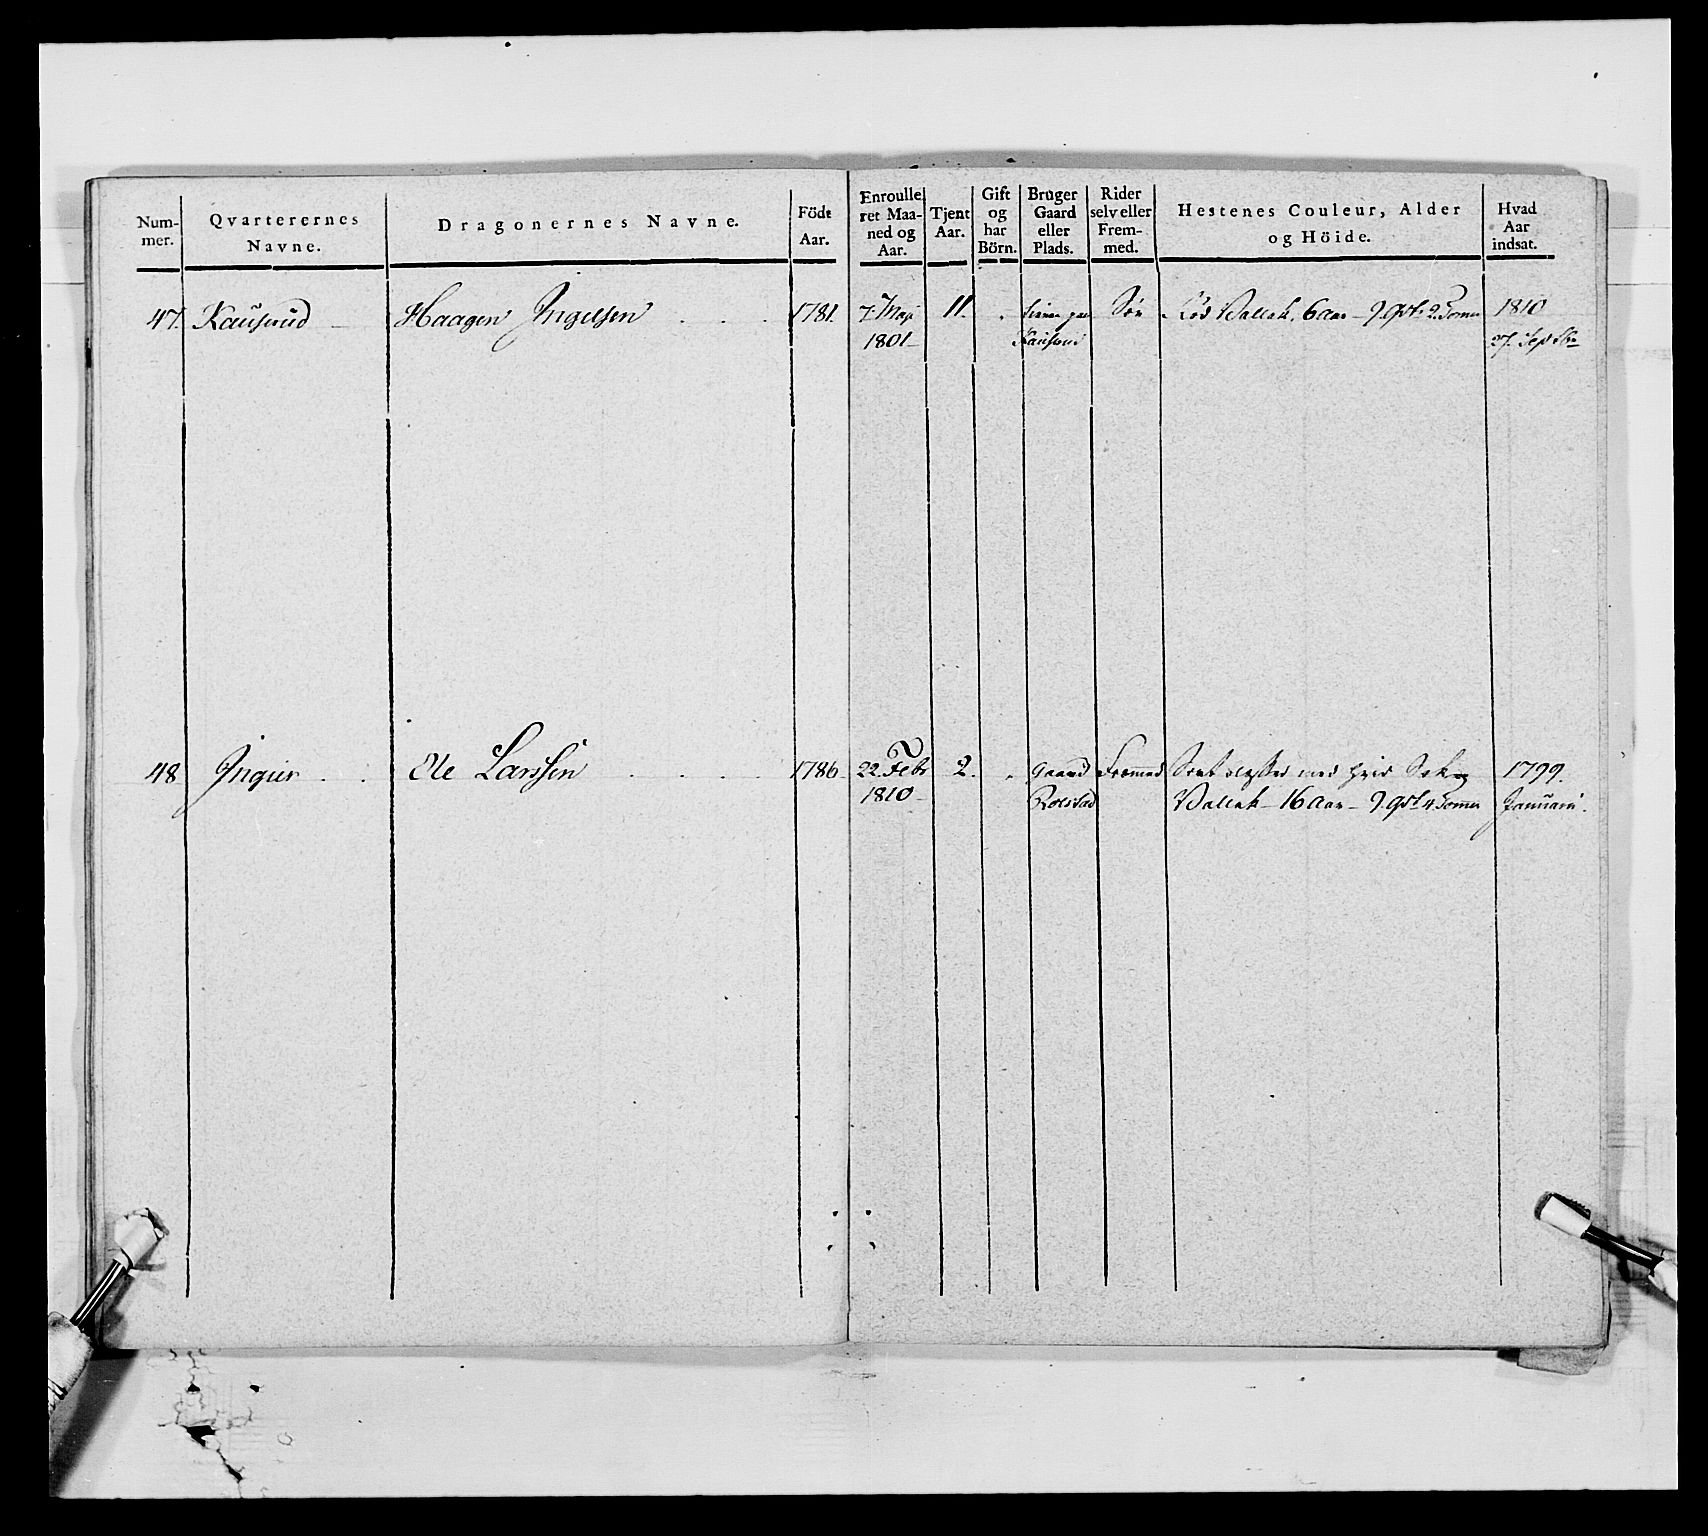 Num-
mer.
Qvarterernes
Navne.
Dragonernes Navne.
Födt
Aar.
Enroulle
ret Maa-
ned og
Aar.
Tjent
Aar.
Gift
og
har
Börn.
Bruger
Gaard
eller
Plads.
Rider
selv eller
Frem-
med.
Hestenes Couleur, Alder
og Höide.
Hvad
Aar
indsat.
47. Kausrud Haagen Ingelsen 1781. 7. Maji 11. Söu Röd Vallak, 6 Aar - 9 qrt. 2 Tomer 1810
1801 Kausrud 27. Septbr
48 Ingier Ole Larssen 1786 22. Febr 2. Gaard Fremmed Sort med hvid Vallak - 16 Aar - 9 qrt 4 Tomer 1799.
1810 Rolstad Januari.